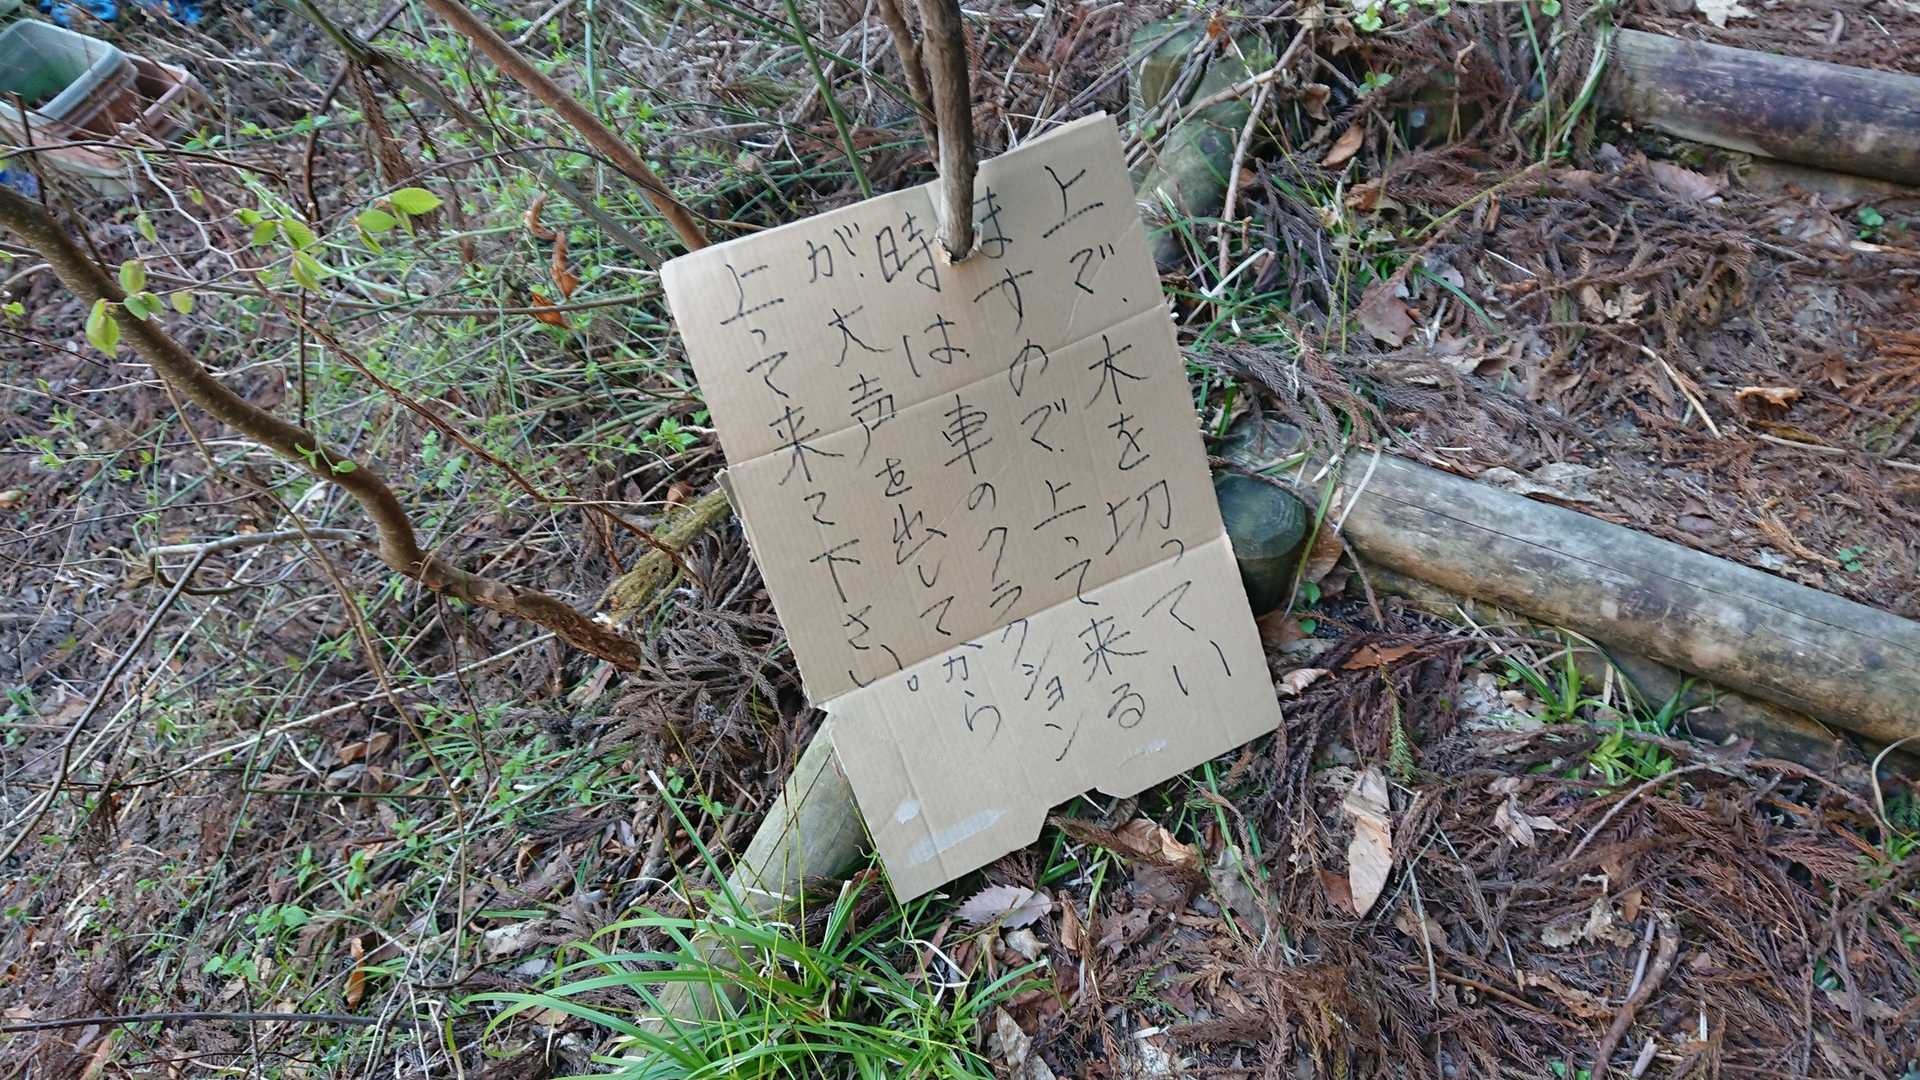 上で、木を切ってい
ますので、上って来る
時は、車のクラクション
が、大声を出してから
上って来て下さい。